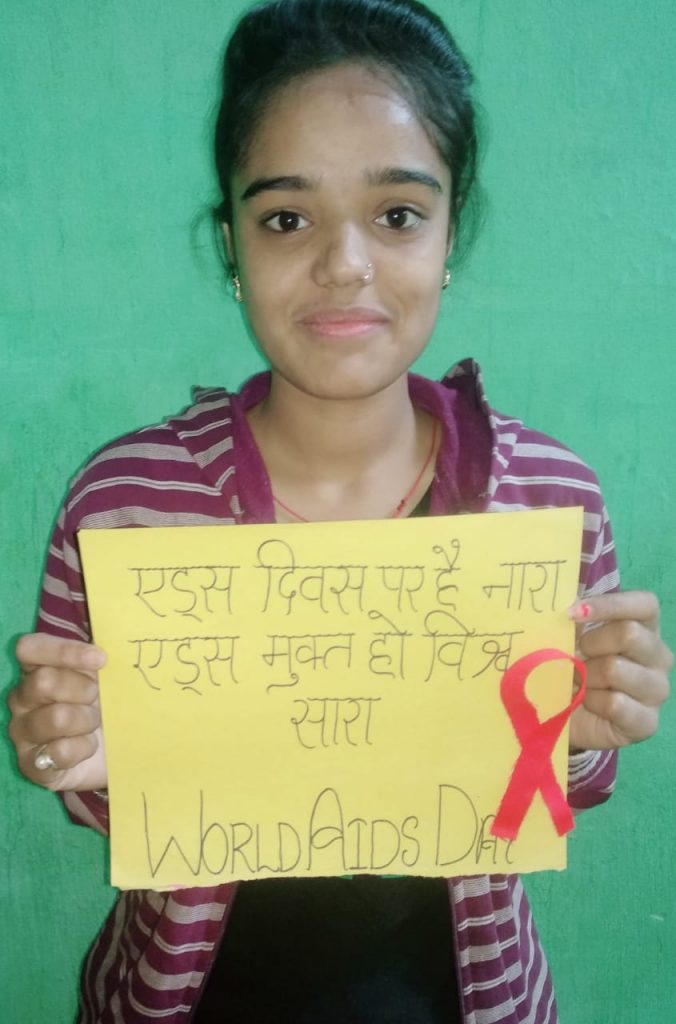 एड्स दिवस पर है नारा
एड्स मुक्त हो विश्व
सारा
WORLD AIDS DAY